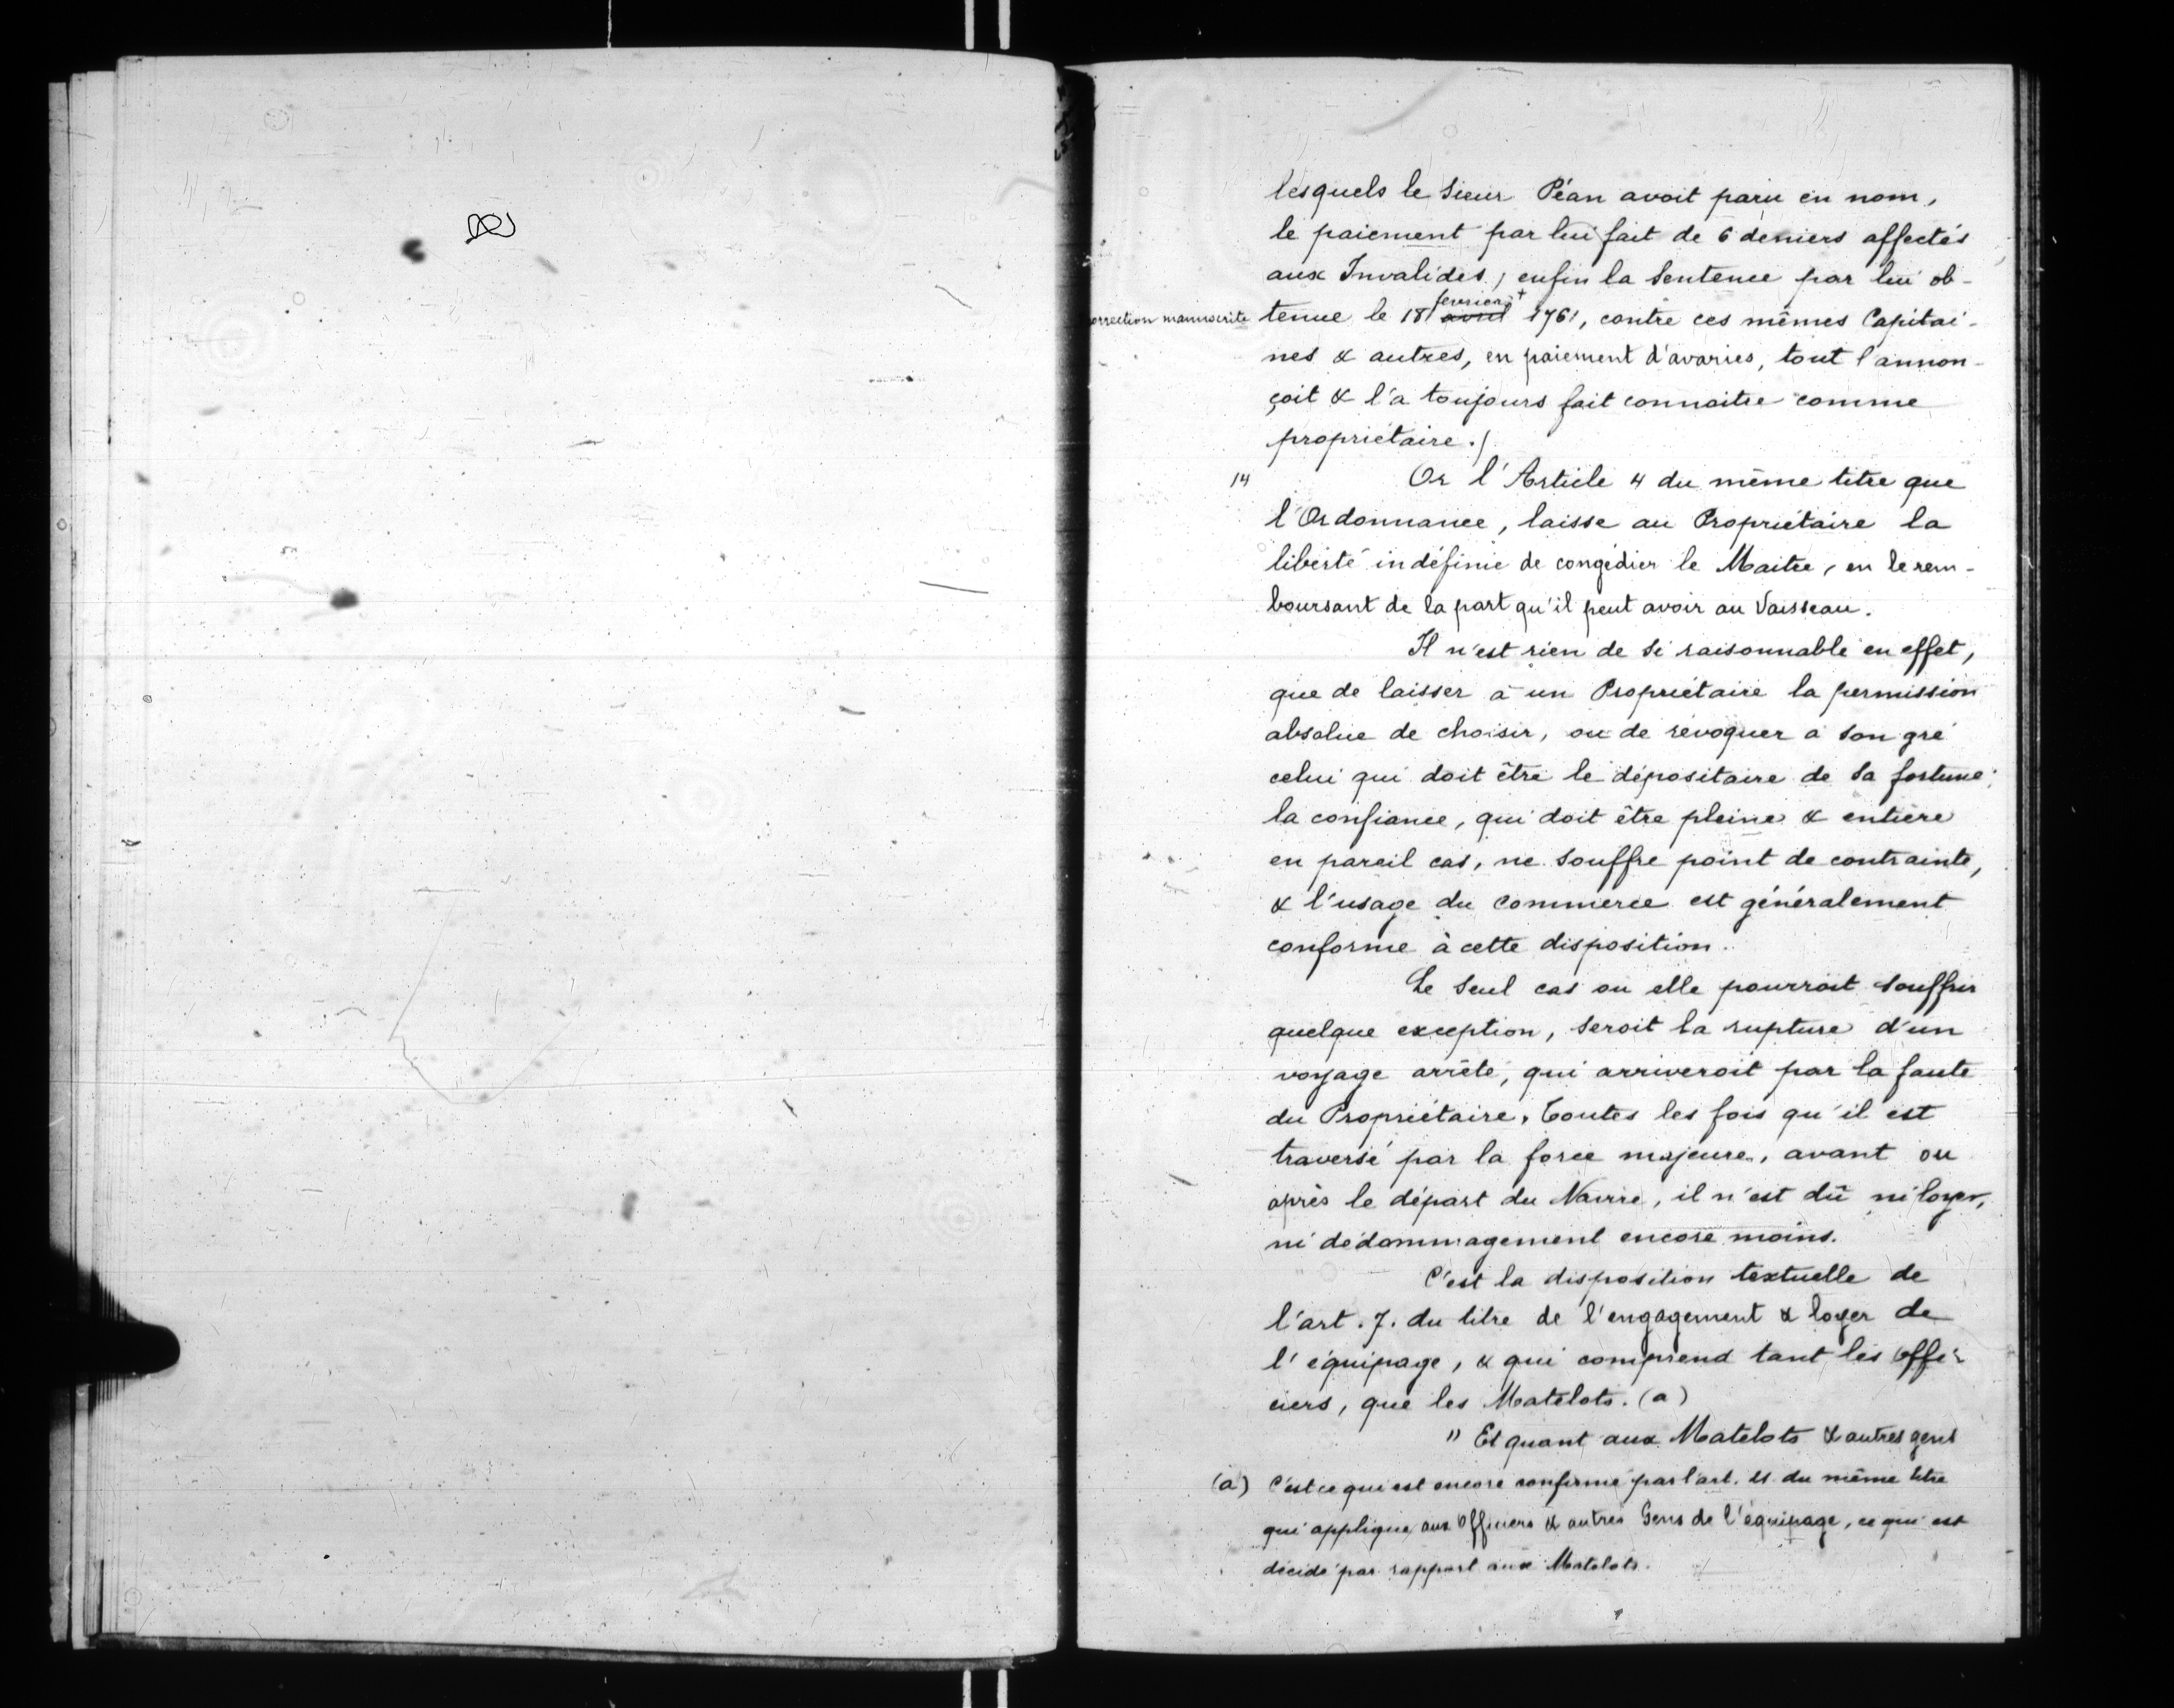 lesquels le sieur Péan avoit paru en nom,
le paiement par lui fait de 6 deniers affectés
aux Invalides, enfin la Sentence par lui ob-
fevrier +
correction manuscrite tenue le 18 avril 1761, contre ces mêmes Capitai-
nes & autres, en paiement d'avaries, tout l'annon-
çoit & l'a toujours fait connoitre comme
propriétaire./
14 Or l'Article 4 du même titre que
l'Ordonnance, laisse au Propriétaire la
liberté indéfinie de congédier le Maitre, en le rem-
boursant de la part qu'il peut avoir au Vaisseau.
Il n'est rien de si raisonnable en effet,
que de laisser à un Propriétaire la permission
absolue de choisir, ou de révoquer a son gré
celui qui doit être le dépositaire de sa fortune;
la confiance, qui doit être pleine & entière
en pareil cas, ne souffre point de contrainte,
& l'usage du commerce est généralement
conforme à cette disposition.
Le seul cas ou elle pourroit souffrir
quelque exception, seroit la rupture d'un
voyage arrêté, qui arriveroit par la faute
du Propriétaire. Toutes les fois qu'il est
traversé par la force majeure, avant ou
après le départ du Navire, il n'est dû ni loyer,
ni dédommagement encore moins.
C'est la disposition textuelle de
l'art. 7. du titre de l'engagement & loyer de
l'équipage, & qui comprend tant les Offi-
ciers, que les Matelots. (a)
" Et quant aux Matelots & autres gens
(a) C'est ce qui est encore confirmé par l'art. du même titre
qui applique aux Officiers & autres Gens de l'équipage, ce qui est
décidé par rapport aux Matelots.